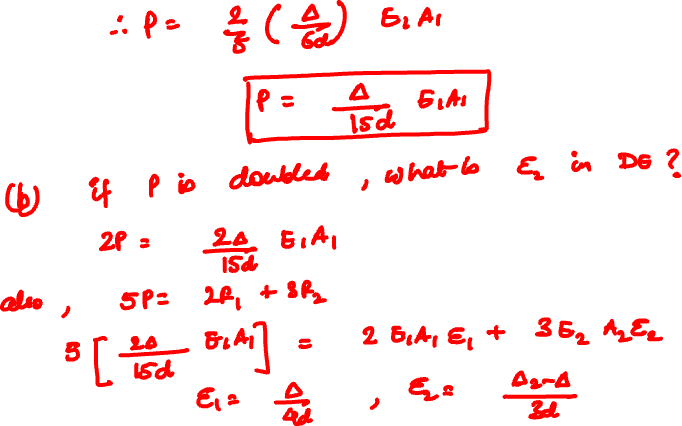 ∴ P = 2/5 (Δ/6d) E₁A₁
P = Δ/15d E₁A₁
(b) if P is doubled, what is ε₂ in DE?
2P = 2Δ/15d E₁A₁
also, 5P = 2F₁ + 3F₂
5 [2Δ/15d E₁A₁] = 2 E₁A₁ε₁ + 3E₂ A₂ε₂
ε₁ = Δ/4d , ε₂ = Δ₂-Δ/3d